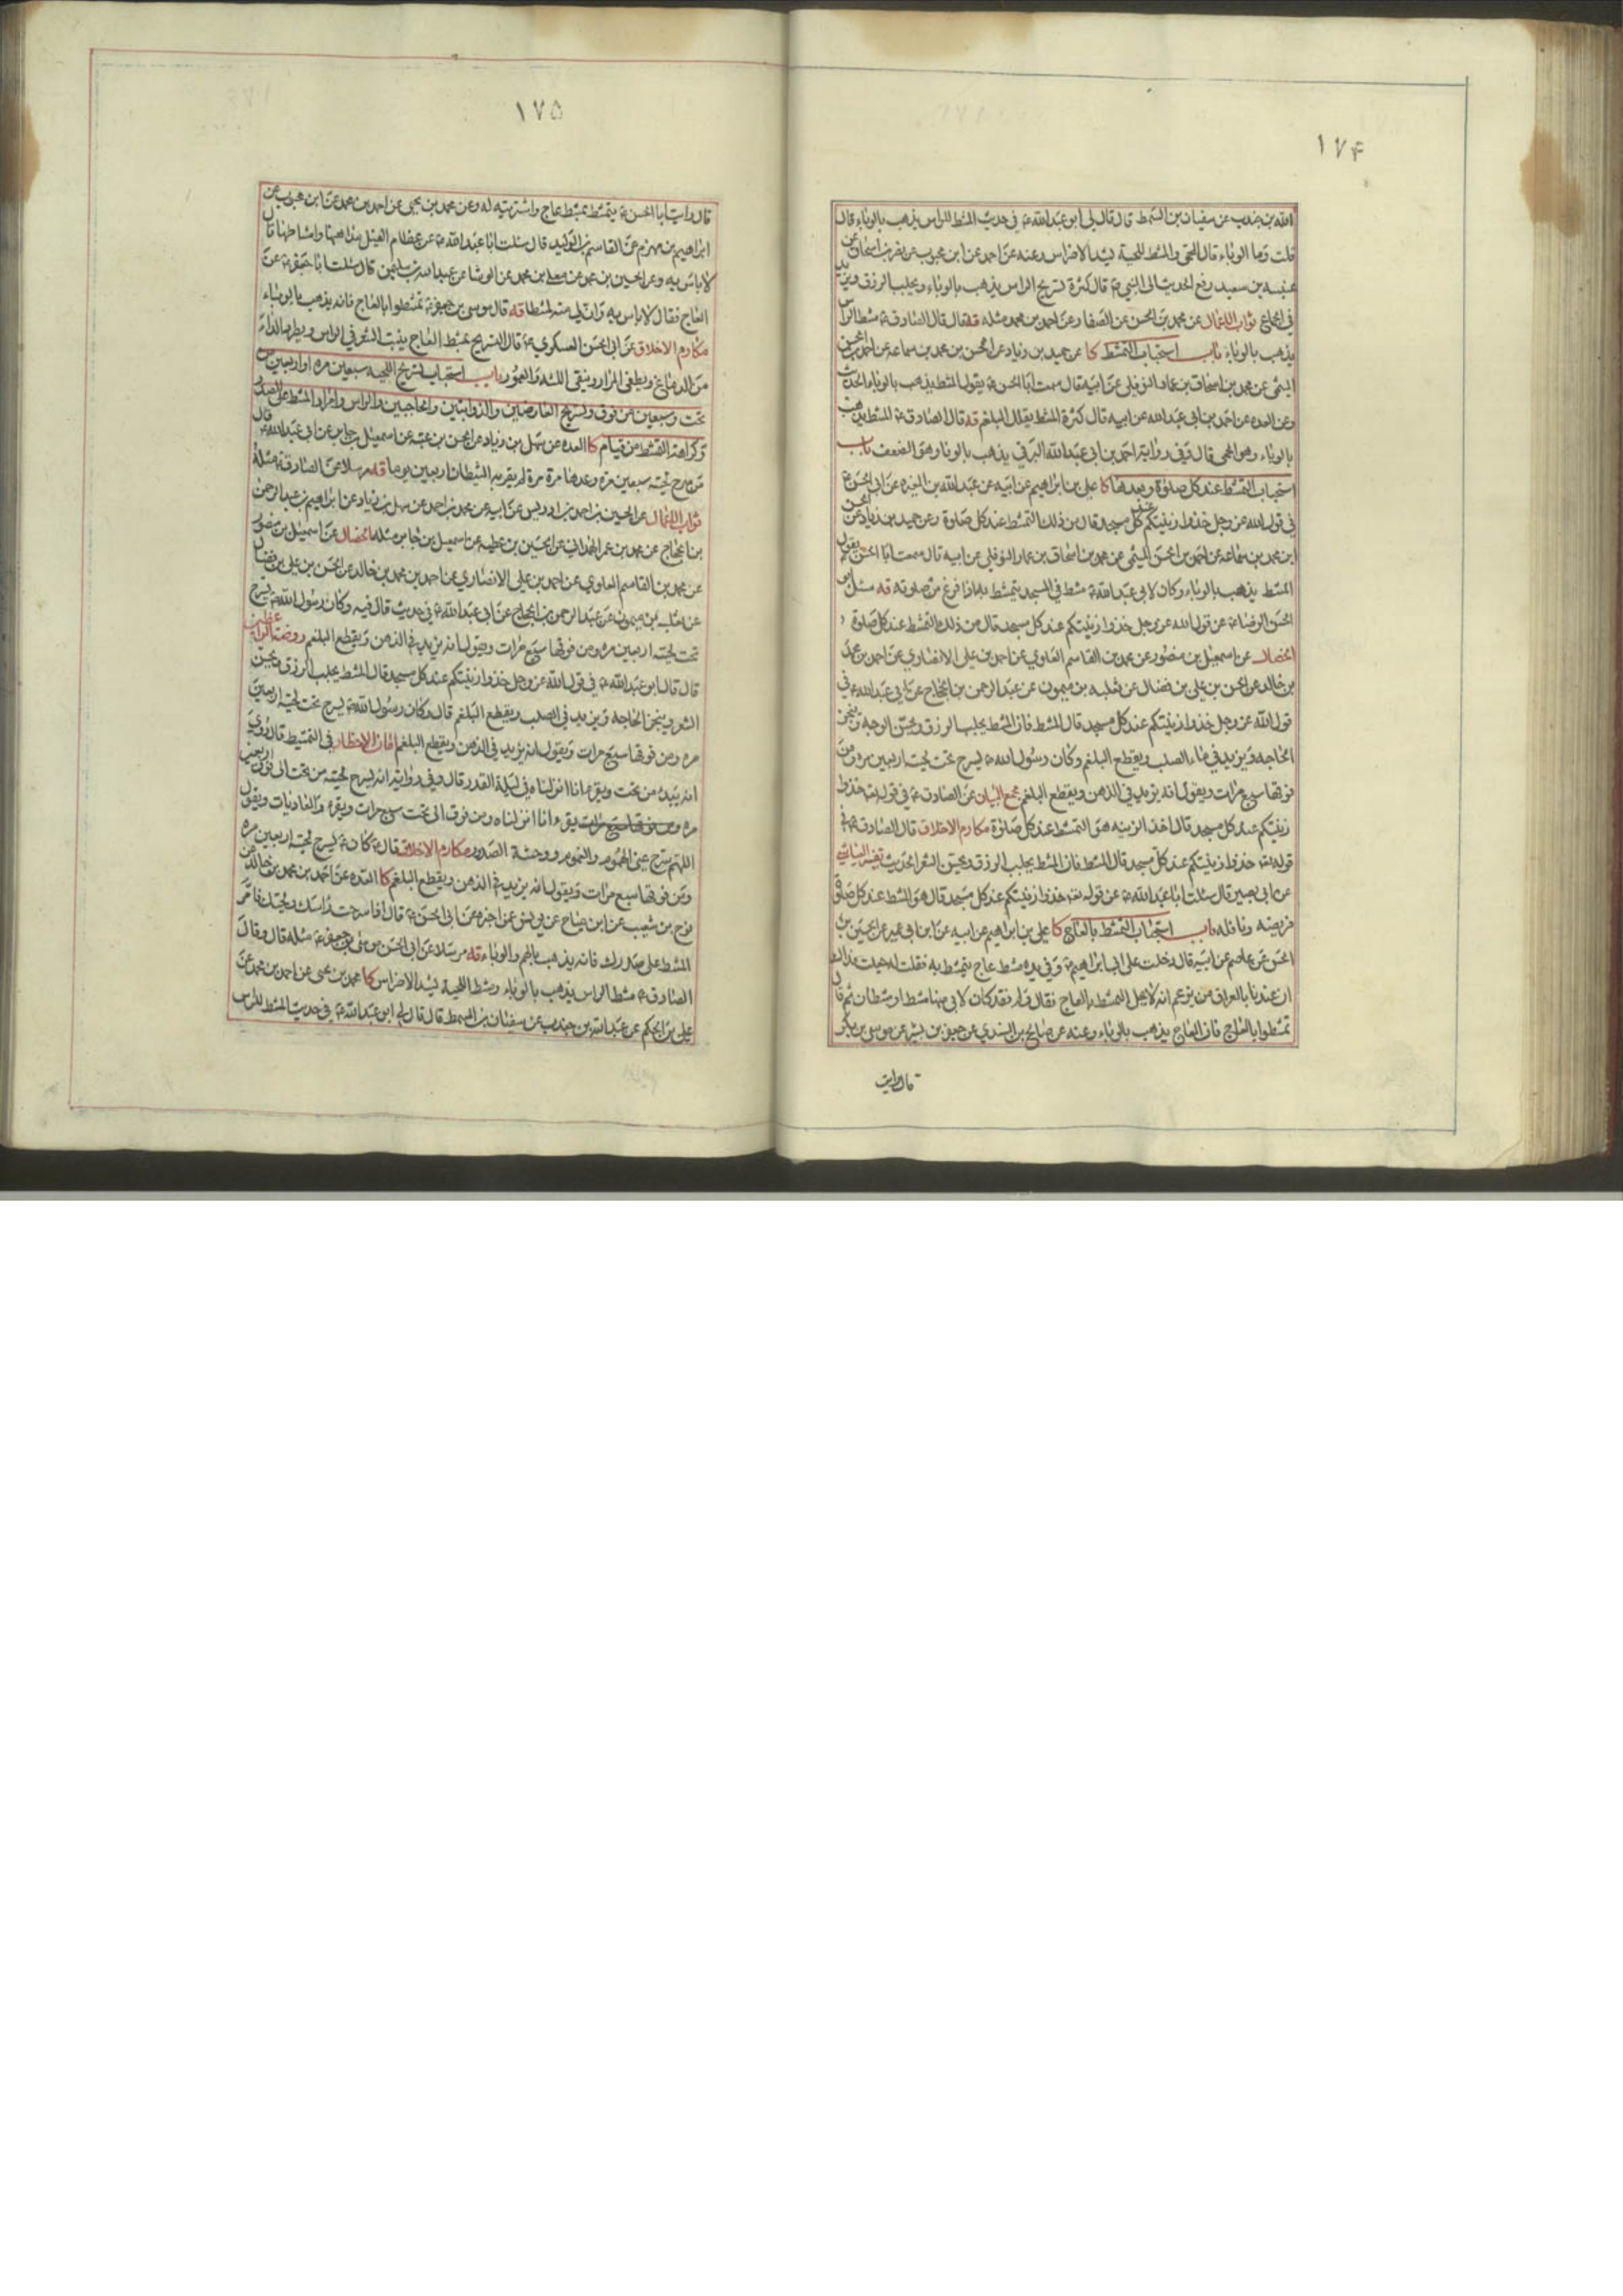 ۱۷۴
الله بن جندب عن سفيان بن السمط قال قال لى ابو عبد الله ع في حديث المشط للراس يذهب بالوباء قال
قلت وما الوباء قال الحمى والمشط للحية يشد الاضراس وعنه عن احمد عن ابن محبوب عن نضر بن اسحاق عن
عنبسه بن سعيد رفع الحديث الى النبى ص قال كثرة تسريح الراس يذهب بالوباء ويجلب الرزق ويزيد
فى الجماع ثواب الاعمال عن محمد بن الحسن عن الصفار عن احمد بن محمد مثله قه قال قال الصادق ع مشط الراس
يذهب بالوباء باب استحباب التمشط كا عن حميد بن زياد عن الحسن بن محمد بن سماعه عن احمد بن الحسن
الميثمى عن محمد بن اسحاق بن عمار النوفلى عن ابيه قال سمعت ابا الحسن ع يقول المشط يذهب بالوباء الحديث
وعن العده عن احمد بن ابى عبد الله عن ابيه قال كثرة المشط يقلل البلغم قه قال الصادق ع المشط يذهب
بالوباء وهو الحمى قال وفى رواية احمد بن ابى عبد الله البرقى يذهب بالونا وهو الضعف باب
استحباب التمشط عند كل صلوة وبعدها كا على بن ابراهيم عن ابيه عن عبد الله بن المغيره عن ابى الحسن ع
فى قول الله عز وجل خذوا زينتكم عند كل مسجد قال من ذلك التمشط عند كل صلوة وعن حميد بن زياد عن الحسن
ابن محمد بن سماعه عن احمد بن الحسن الميثمى عن محمد بن اسحاق بن عمار النوفلى عن ابيه قال سمعت ابا الحسن ع يقول
المشط يذهب بالوباء وكان لابى عبد الله ع مشط فى المسجد يتمشط به اذا فرغ من صلوته قه سئل ابو
الحسن الرضا ع عن قول الله عز وجل خذوا زينتكم عند كل مسجد قال من ذلك التمشط عند كل صلوة
الخصال عن اسمعيل بن منصور عن محمد بن القاسم العلوى عن احمد بن على الانصارى عن احمد بن محمد
بن خالد عن الحسن بن على بن فضال عن ثعلبه بن ميمون عن عبد الرحمن بن الحجاج عن ابى عبد الله ع فى
قول الله عز وجل خذوا زينتكم عند كل مسجد قال المشط فان المشط يجلب الرزق ويحسن الوجه وينجز
الحاجه ويزيد فى ماء الصلب ويقطع البلغم وكان رسول الله ص يسرح تحت لحيته اربعين مره ومن
فوقها سبع مرات ويقول انه يزيد فى الذهن ويقطع البلغم مجمع البيان عن الصادق ع فى قوله تعالى خذوا
زينتكم عند كل مسجد قال اخذ الزينه هو التمشط عند كل صلوة مكارم الاخلاق قال الصادق ع فى
قوله تعالى خذوا زينتكم عند كل مسجد قال المشط فان المشط يجلب الرزق ويحسن الشعر الحديث تفسير العياشى
عن ابى بصير قال سئلت ابا عبد الله ع عن قوله تعالى خذوا زينتكم عند كل مسجد قال هو المشط عند كل صلوة
فريضه ونافله باب استحباب التمشط بالعاج كا على بن ابراهيم عن ابيه عن ابن ابى عمير عن الحسين بن
الحسن عن عاصم عن ابيه قال دخلت على ابى ابراهيم ع وفى يده مشط عاج يتمشط به فقلت له جعلت فداك
ان عندنا بالعراق من يزعم انه لا يحل التمشط بالعاج فقال ولم فقد كان لابى منها مشط او مشطان ثم قال
تمشطوا بالعاج فان العاج يذهب بالوباء وعنه عن صالح بن السندى عن جعفر بن بشير عن موسى بن بكر
قال رايت
۱۷۵
قال رايت ابا الحسن ع يتمشط بمشط عاج واشتريته له وعن محمد بن يحيى عن احمد بن محمد عن ابن محبوب عن
ابراهيم بن مهزم عن القاسم بن الوليد قال سئلت ابا عبد الله ع عن عظام الفيل مداهنها وامشاطها قال
لا باس به وعن الحسين بن محمد عن معلى بن محمد عن الوشا عن عبد الله بن سليمان قال سئلت ابا جعفر ع عن
العاج فقال لا باس به وان لى منه لمشطا قه قال موسى بن جعفر ع تمشطوا بالعاج فانه يذهب بالوباء
مكارم الاخلاق عن ابى الحسن العسكرى ع قال التسريح بمشط العاج ينبت الشعر فى الراس ويطرد الداء
من الدماغ ويطفى المرار وينقى اللثه والعمور باب استحباب تسريح اللحيه سبعين مره او اربعين من
تحت وسبعين من فوق وتسريح العارضين والذوابتين والحاجبين والراس وامرار المشط على الصدر
وكراهة التمشط من قيام كا العده عن سهل بن زياد عن الحسن بن عتبه عن اسمعيل بن جابر عن ابى عبد الله ع قال
من سرح لحيته سبعين مرة وعدها مرة مرة لم يقربه الشيطان اربعين يوما قه مرسلا عن الصادق ع مثله
ثواب الاعمال عن الحسين بن احمد بن ادريس عن ابيه عن محمد بن احمد عن سهل بن زياد عن ابراهيم بن عبد الرحمن
بن الحجاج عن محمد بن عمر الهمدانى عن الحسين بن عطيه عن اسمعيل بن جابر مثله الخصال عن اسمعيل بن منصور
عن محمد بن القاسم العلوى عن احمد بن على الانصارى عن احمد بن محمد بن خالد عن الحسن بن على بن فضال
عن ثعلبه بن ميمون عن عبد الرحمن بن الحجاج عن ابى عبد الله ع فى حديث قال فيه وكان رسول الله ص يسرح
تحت لحيته اربعين مره ومن فوقها سبع مرات ويقول انه يزيد فى الذهن ويقطع البلغم روضة الواعظين
قال قال ابو عبد الله ع فى قول الله عز وجل خذوا زينتكم عند كل مسجد قال المشط يجلب الرزق ويحسن
الشعر وينجز الحاجه ويزيد فى الصلب ويقطع البلغم قال وكان رسول الله ص يسرح تحت لحيته اربعين
مره ومن فوقها سبع مرات ويقول انه يزيد فى الذهن ويقطع البلغم امان الاخطار فى التمشيط قال وروى
انه يبدء من تحت ويقرء انا انزلناه فى ليلة القدر قال وفى رواية انه يسرح لحيته من تحت الى فوق اربعين
مره ومن فوقها سبع مرات يقرء انا انزلناه ومن فوق الى تحت سبع مرات ويقرء والعاديات ويقول
اللهم سرح عنى الهموم والغموم ووحشة الصدور مكارم الاخلاق قال ع كان ص يسرح لحيته اربعين مره
ومن فوقها سبع مرات ويقول انه يزيد فى الذهن ويقطع البلغم كا العده عن احمد بن محمد بن خالد عن
نوح بن شعيب عن ابن مياح عن يونس عمن اخبره عن ابى الحسن ع قال اذا سرحت راسك ولحيتك فامر
المشط على صدرك فانه يذهب بالهم والوباء قه مرسلا عن ابى الحسن موسى بن جعفر ع مثله قال وقال
الصادق ع مشط الراس يذهب بالوباء ومشط اللحية يشد الاضراس كا محمد بن يحيى عن احمد بن محمد عن
على بن الحكم عن عبد الله بن جندب عن سفيان بن السمط قال قال لى ابو عبد الله ع فى حديث المشط للراس